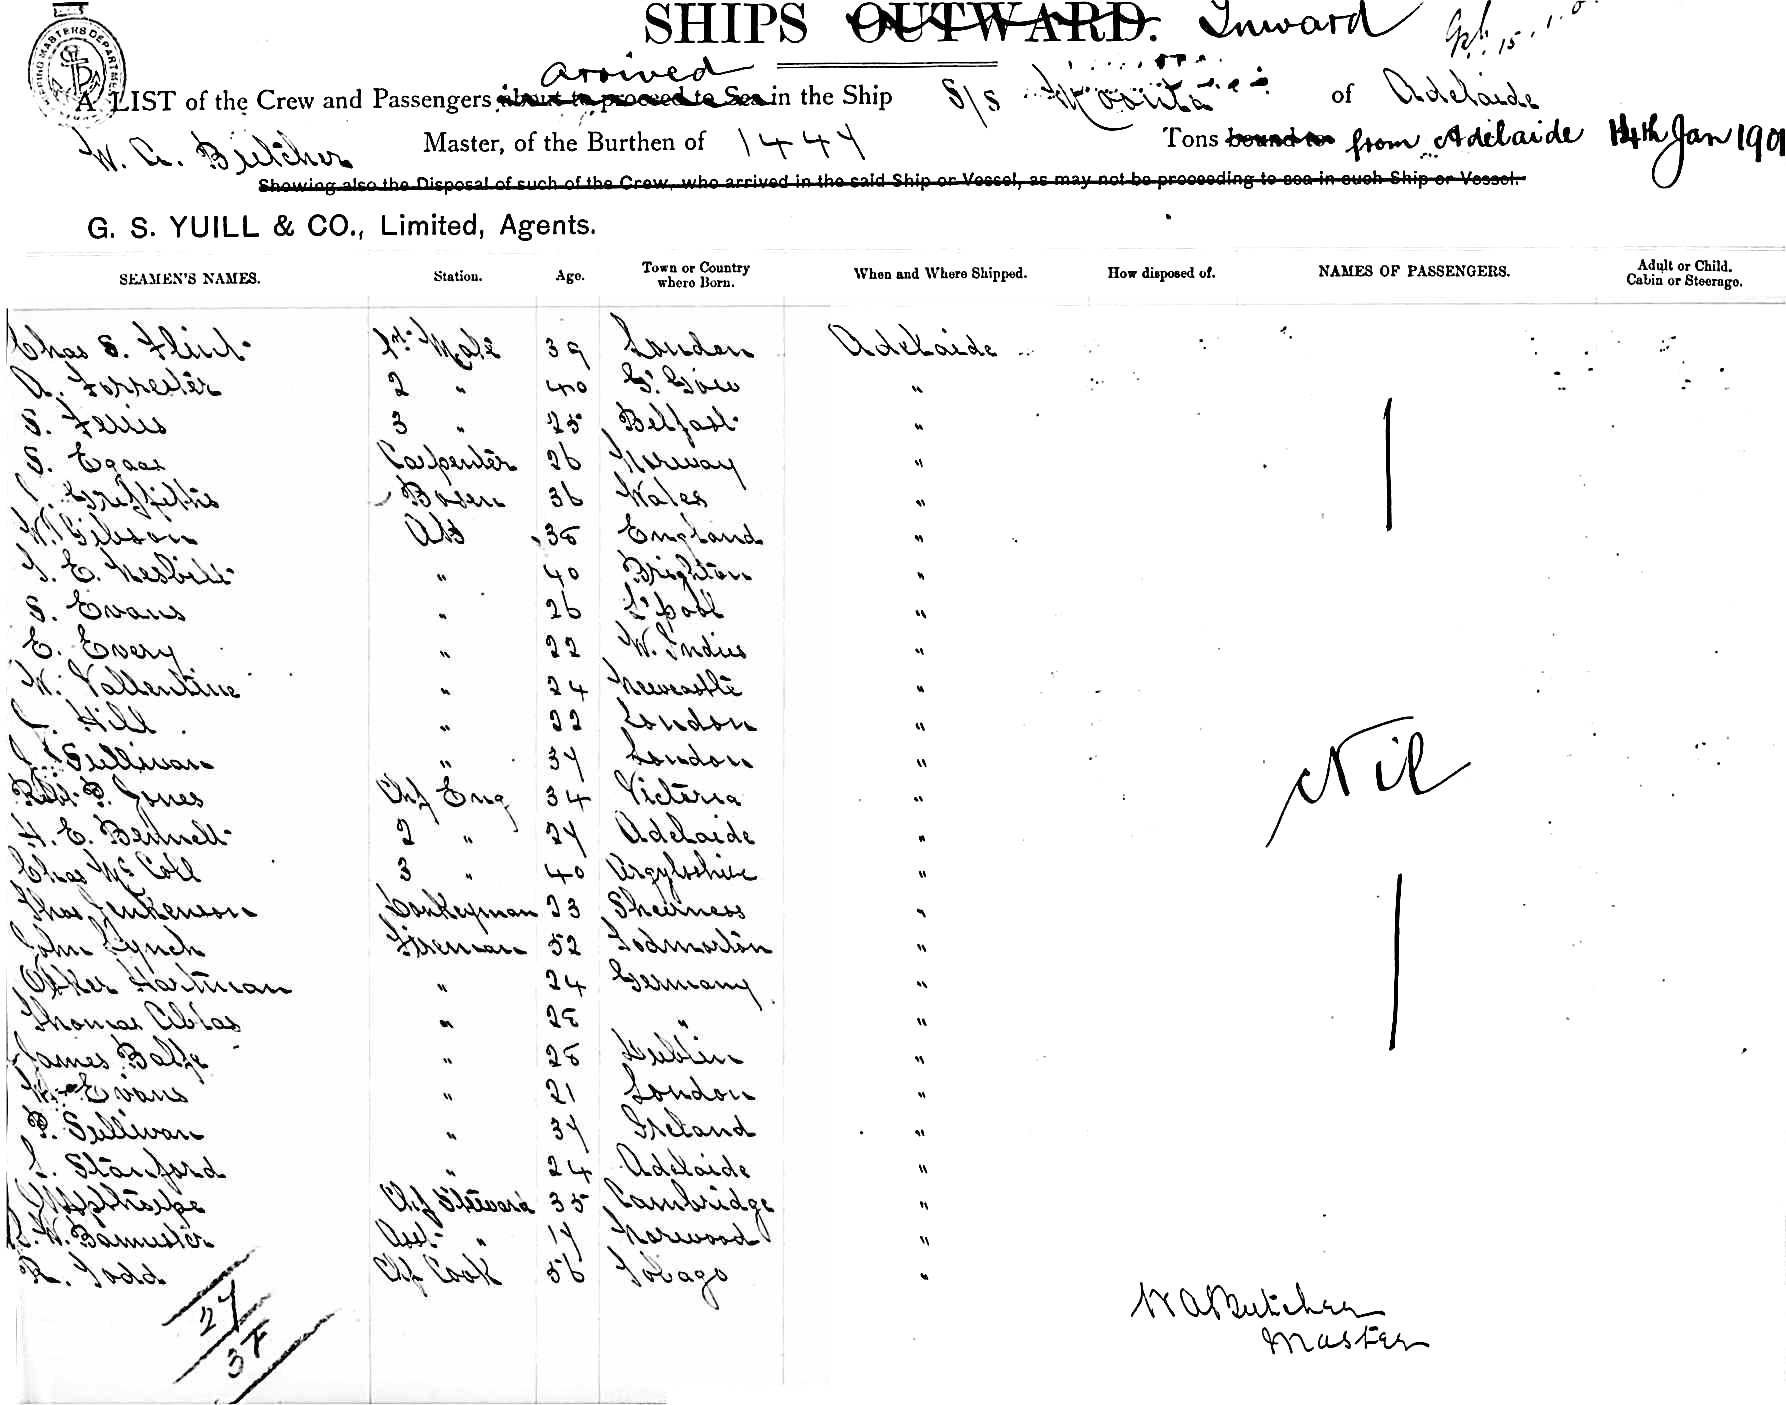 SHIPS OUTWARD. Inward
arrived
A LIST of the Crew and Passengers about to proceed to Sea in the Ship S/S of Adelaide
W. A. Butcher Master, of the Burthen of 1444 Tons bound to from Adelaide 14th Jan 190
Showing also the Disposal of such of the Crew, who arrived in the said Ship or Vessel, as may not be proceeding to sea in such Ship or Vessel.
G. S. YUILL & CO., Limited, Agents.
SEAMEN'S NAMES. Station. Age. Town or Country where Born. When and Where Shipped. How disposed of. NAMES OF PASSENGERS. Adult or Child. Cabin or Steerage.
Chas S. Flint 1st Mate 39 London Adelaide
A. Forrester 2 " 40 G'. Gow "
S. Ferris 3 " 25 Belfast "
S. Carpenter 26 Norway "
Griffiths Bosen 36 Wales "
W. Gibson AB 38 England "
E. Nesbitt " 40 Brighton "
S. Evans " 26 L'pool "
E. Every " 22 W. Indies "
W. Vallentine " 24 Newcastle "
Hill " 22 London "
J. Sullivan " 37 London "
Robt P. Jones Chf Eng 34 Victoria " Nil
H. E. Bennett 2 " 27 Adelaide "
Chas McColl 3 " 40 Argyleshire "
Thos Jenkenson Donkeyman 23 Sheerness "
John Lynch Fireman 52 Todmorton "
Hartman " 24 Germany "
Thomas Ablas " 28 " "
James Balfe " 28 Dublin "
W. Evans " 21 London "
P. Sullivan " 37 Ireland "
Stanford " 24 Adelaide "
Chf Steward 35 Cambridge "
W. Bannister Asst " 17 Norwood "
R. Todd Chf Cook 56 Tobago "
27
37
W A Butcher
Master